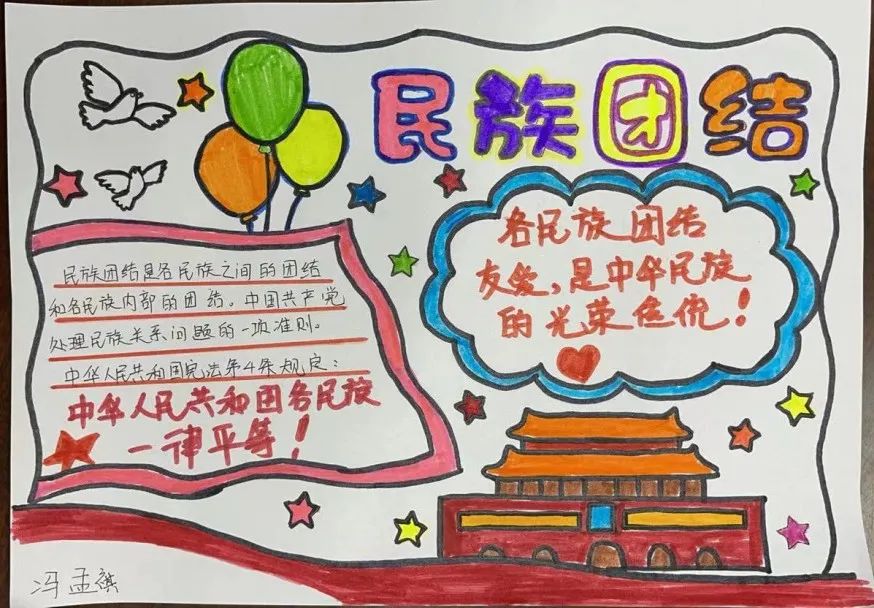 民族团结
民族团结是各民族之间的团结
和各民族内部的团结。中国共产党
处理民族关系问题的一项准则。
中华人民共和国宪法第4条规定:
中华人民共和团各民族
一律平等!
各民族团结
友爱,是中华民族
的光荣!
冯孟祺